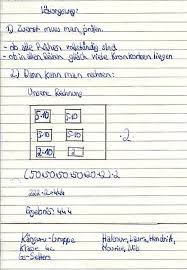 Lösungsweg:
1) Zuerst muss man prüfen
- ob alle Reihen vollständig sind
- ob in allen Reihen gleich viele Kronkorken liegen
2.) Dann kann man rechnen:
Unsere Rechnung
5·10 5·10
5·10 5·10
2·10 2
· 2
(50+50+50+50+20+2)·2
222·2=444
Ergebnis: 444
Känguru-Gruppe
Klasse 4c
GS-Selters